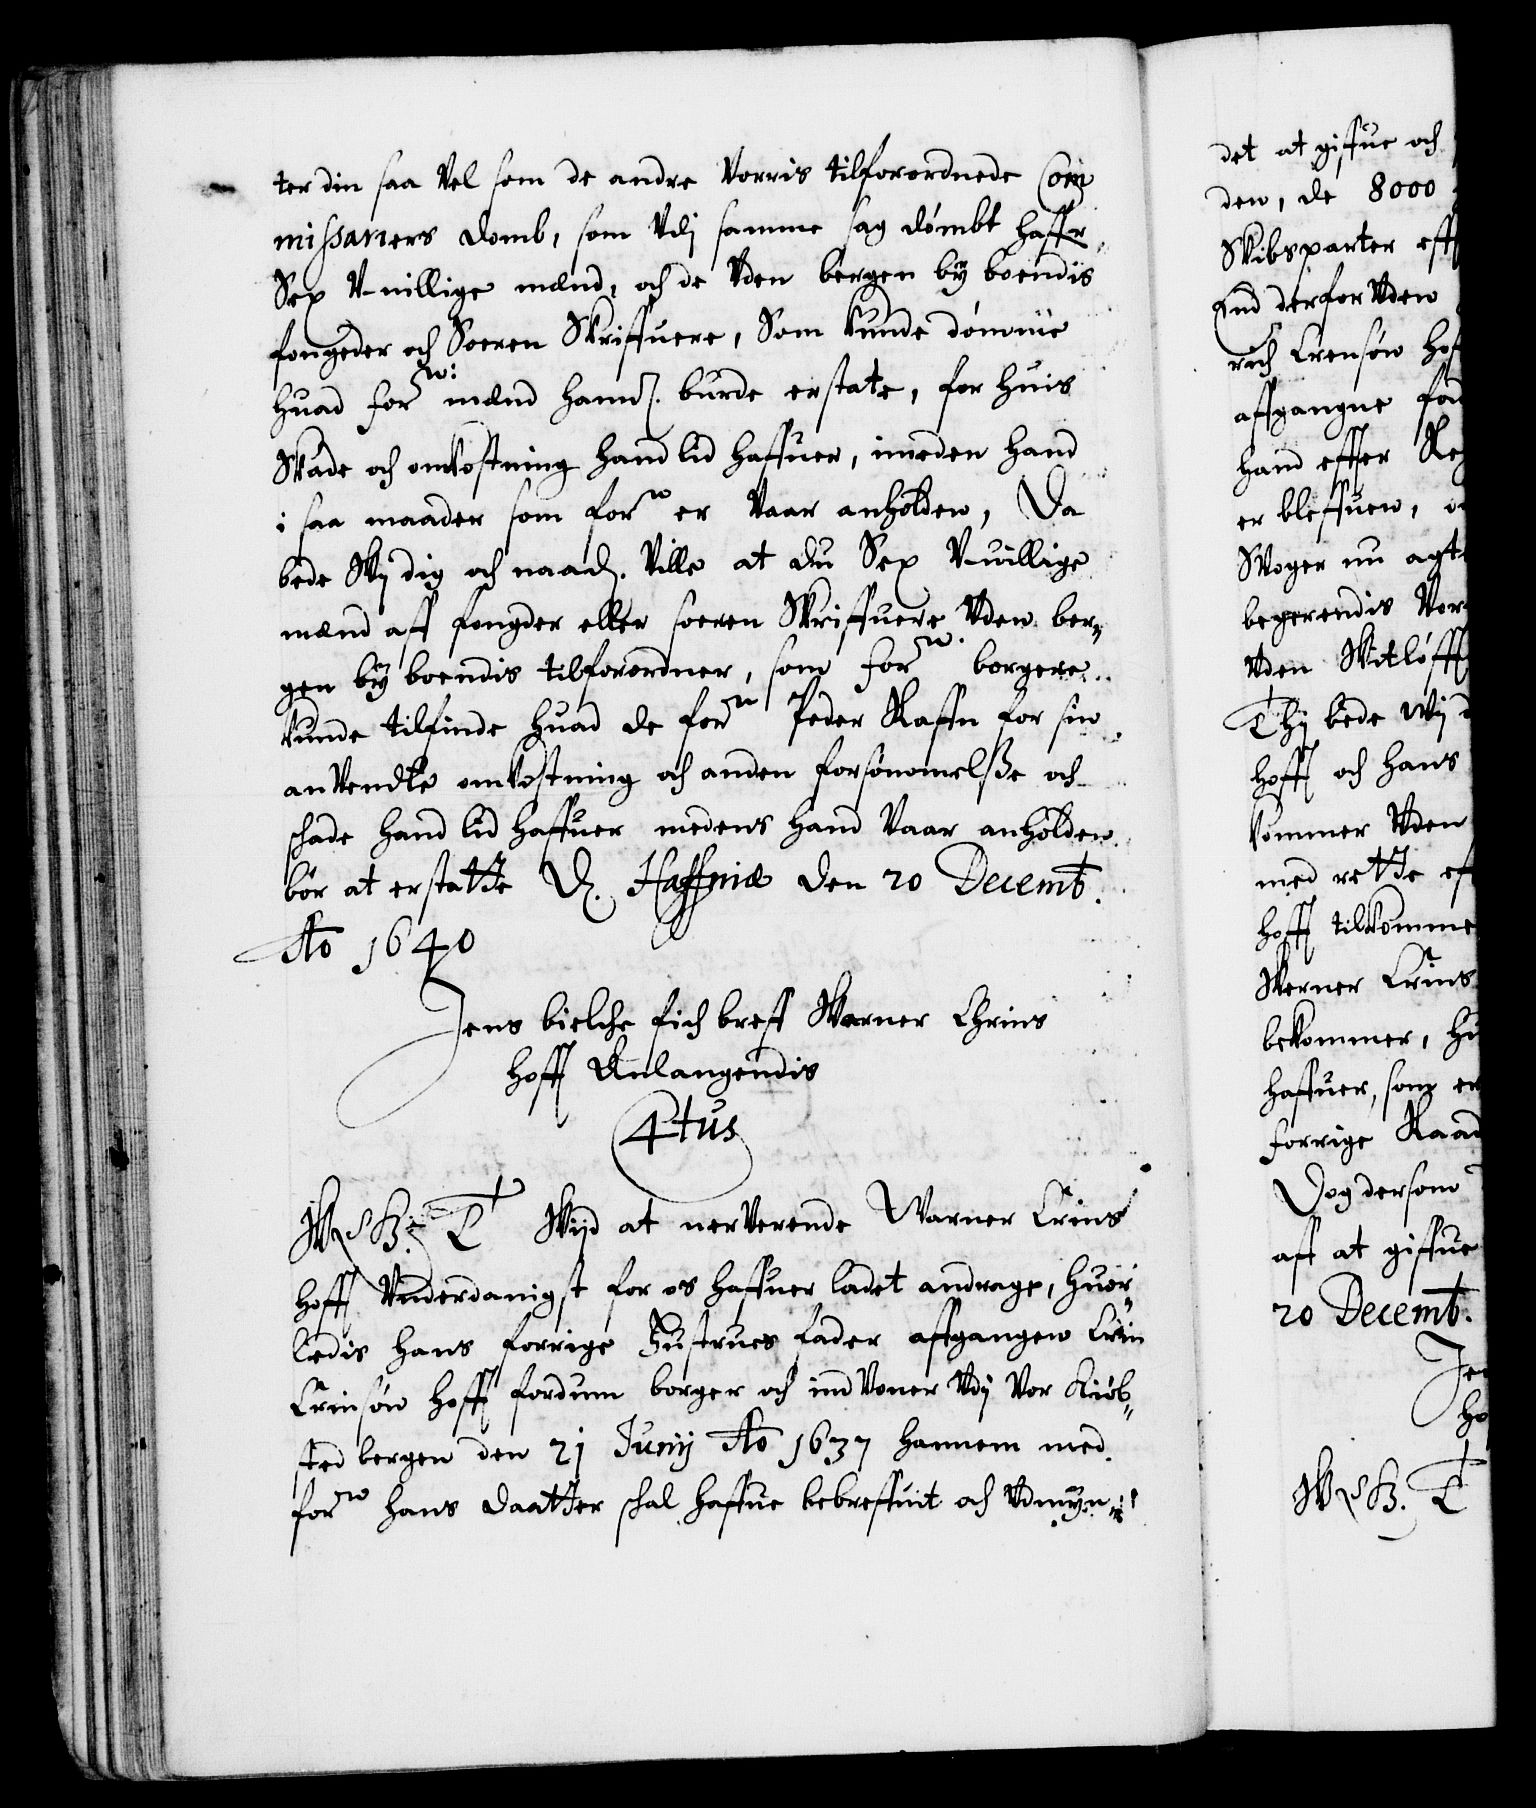 ter din saa Vel som de andre Vorris tilforordnede Com
missariers domb, som Vdj samme sag dømbt haffr
Sex V-uillige mænd, och de Vden bergen bÿ boendis
fougeder och Soeren Skriffuere, Som kunde dømme
huad forne: mænd hannd. burde erstate, for huis
Skade och omkostning hand lid haffuer, imeden hand
i saa maader som forne er Vaar anholden, Da
bede Wj dig och naad. Ville at du Sex V-uillige
mænd aff fougder eller soeren Skriffuere Vden ber„
gen bÿ boendis tilforordner, som forne borgere
kunde tilfinde huad de forne Peder Raffn for sin
anVendte omkostning och anden forsømmelße och
schade hand lid haffuer medens hand Vaar anholden
bör at erstatte D. Haffniæ den 20 Decemb.
Ao 1640
Jens bielche fich breff Warner Chrins
hoff Anlangendis
4tus
W. S. G. T Wijd at nerVerende Warner Crins
hoff Vnderdanigst for os haffuer ladet andrage, huor„
ledis hans forrige Hustrues fader affgangen Crin
Crinsøn hoff fordum borger och indVoner Vdj Vor Kiøb„
sted bergen den 21 Junij Ao 1637 hannem med
forne hans daatter schal haffue bebreffuit och Vdmÿn„
det at giffue och
den, de 8000
Skibsparter eff
End derfor Vden
rich Crensøn Hof
affgangne fad
hand effter Reg
er bleffuen, o
Swoger nu agt
begerendis Vor
Vden Witløff
Thj bede Wij d
hoff och hans
kommer Vden
med rette ef
hoff tilkomme
Werner Crins
bekommer, hu
haffuer, som er
forrige Raad
Dog dersom
aff at giffue
20 Decemb.
Jen
ho
W. S. G. T